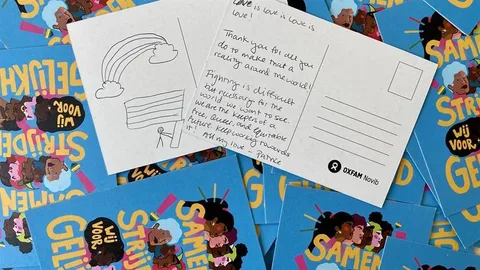 Love is love is love is
love!
Thank you for all you
do to make that a
reality around the world!
Fighting is difficult
but necessary for the
world we want to see.
We are the keepers of a
free, Queer, and Equitable
future. Keep working towards
it! All my love - Patrice
OXFAM Novib
SAMEN
STRIJDEN
WIJ
VOOR.
GELIJKH
SAMEN
STRIJDE
WIJ
VOOR.
GEL
SAMEN
STRIJD
WIJ
VOOR.
GELIJ
SAMEN